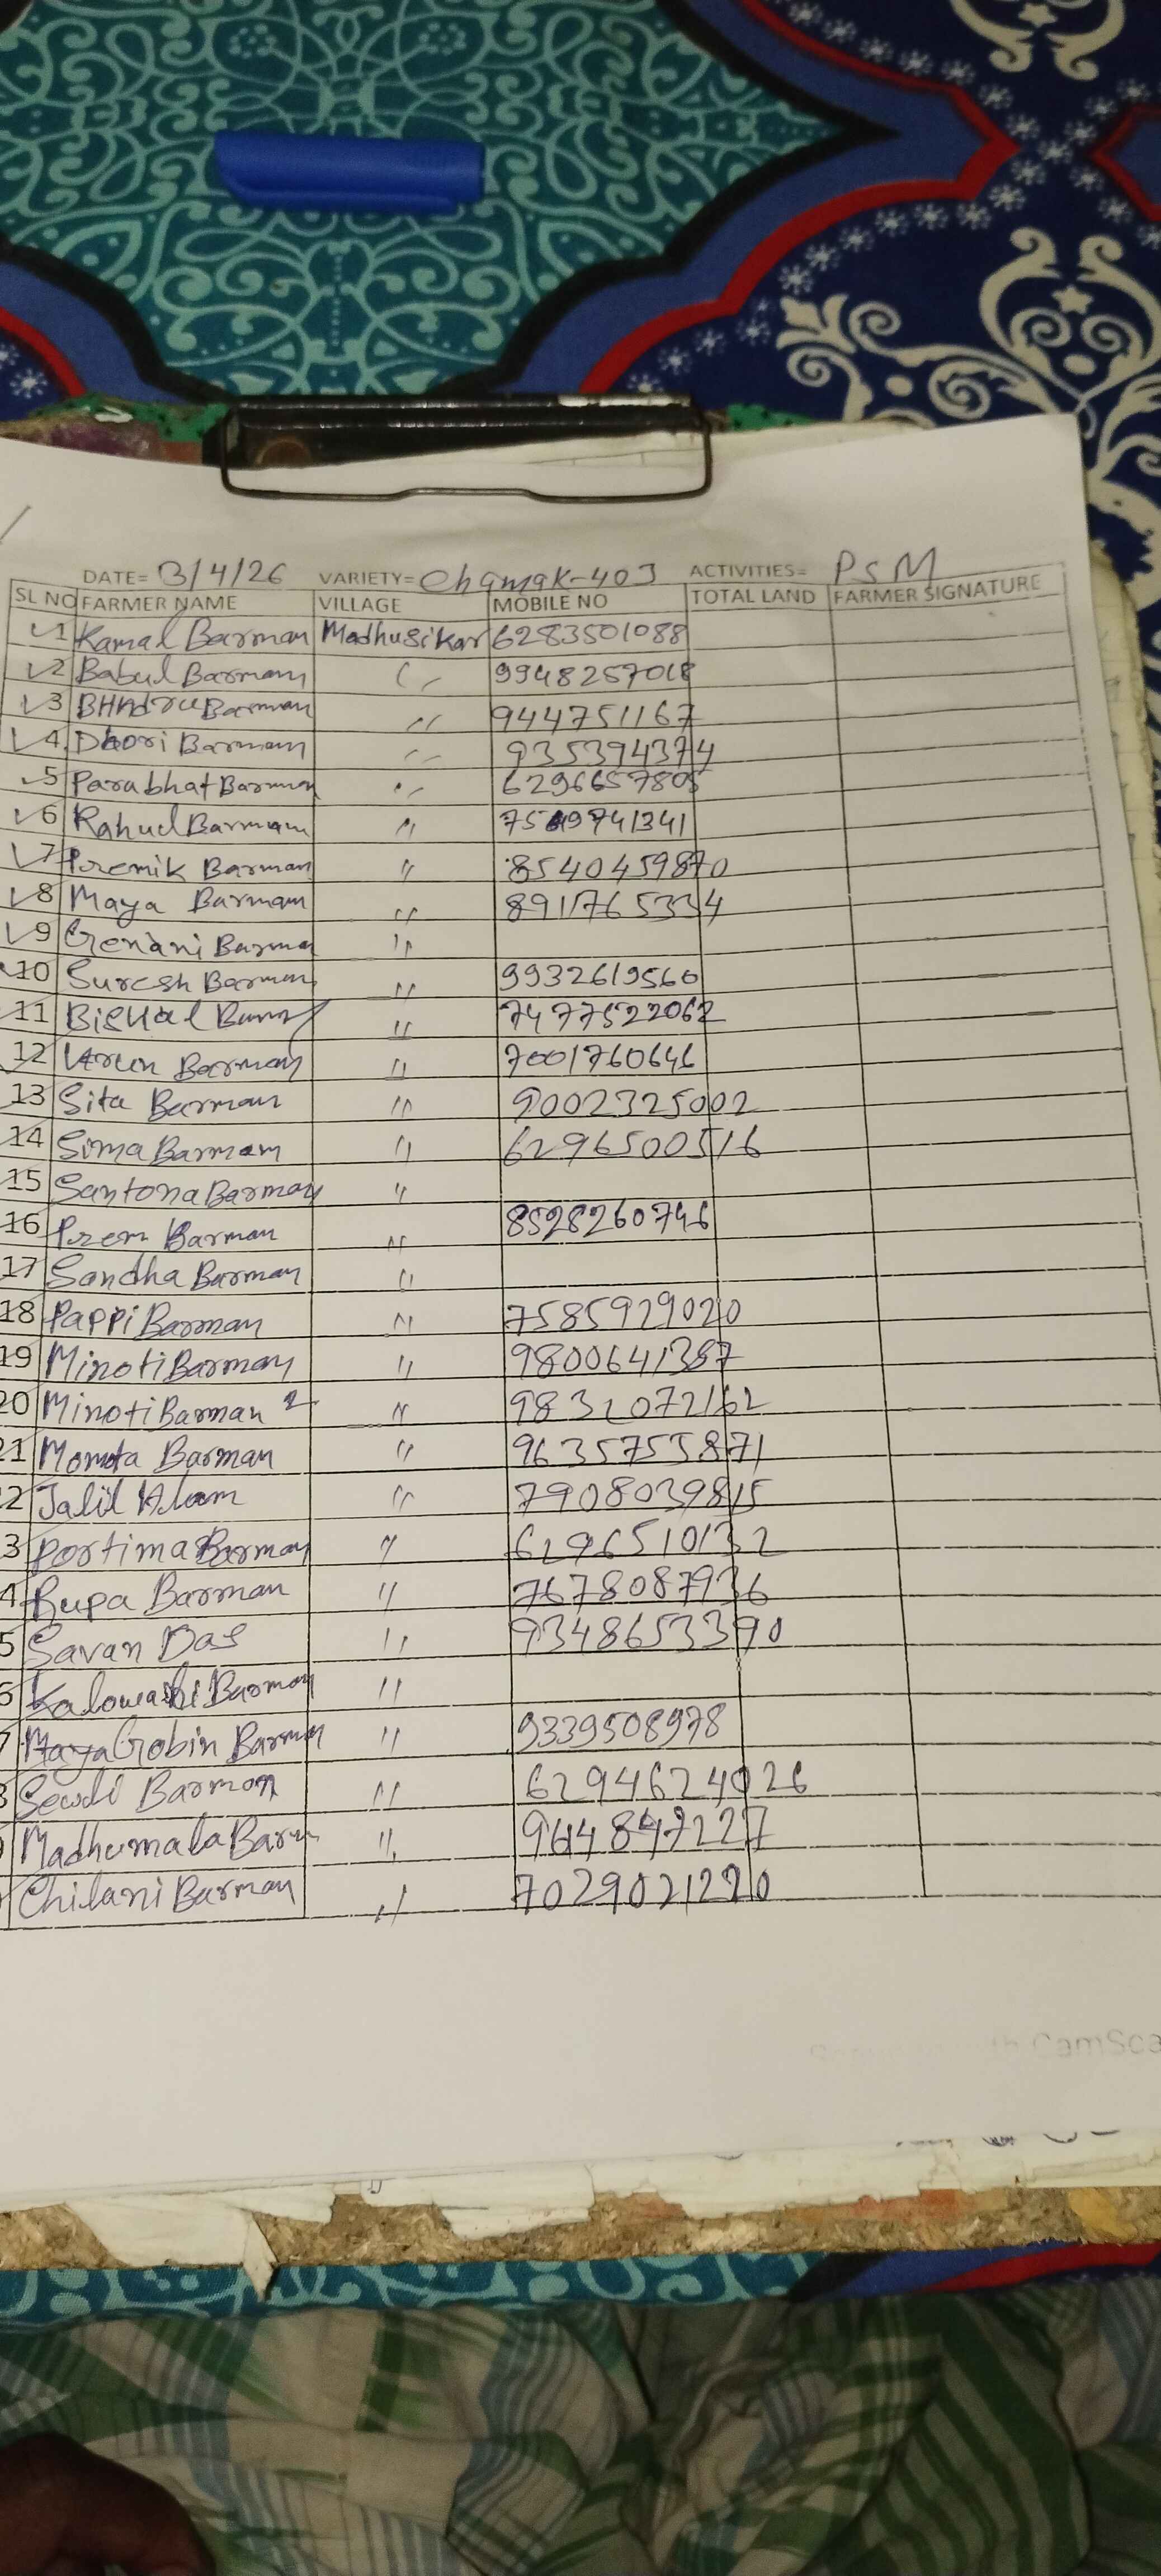 DATE= 13/4/26 VARIETY= Chamak-403 ACTIVITIES= PSM
SL NO FARMER NAME VILLAGE MOBILE NO TOTAL LAND FARMER SIGNATURE
1 Kamal Barman Madhusikar 6283501088
2 Babul Barman 〃 9948257018
3 BHADRU Barman 〃 944751167
4 Dhori Barman 〃 935394374
5 Parabhat Barman 〃 6296657805
6 Rahul Barman 〃 7549741341
7 Premik Barman 〃 8540459870
8 Maya Barman 〃 8911765334
9 Genani Barma 〃
10 Suresh Barman 〃 9932619560
11 Bishal 〃 7477522062
12 Arun Barman 〃 7001760646
13 Sita Barman 〃 9002325002
14 Sima Barmam 〃 6296500516
15 Santona Barman 〃
16 Prem Barman 〃 8528260746
17 Sandha Barman 〃
18 Pappi Barman 〃 7585929020
19 Minoti Barman 〃 9800641387
20 Minoti Barman 2 〃 9832072162
21 Momota Barman 〃 9635753871
2 Jalil Alam 〃 7908039815
3 Portima Barman 〃 6296510132
4 Rupa Barman 〃 7678087936
5 Savan Das 〃 9348653390
6 Barman 〃
7 Maya Gobin Barman 〃 9339508978
8 Barman 〃 6294624026
Madhumala Barm 〃
Chilani Barman 〃 7029021220
CamSca